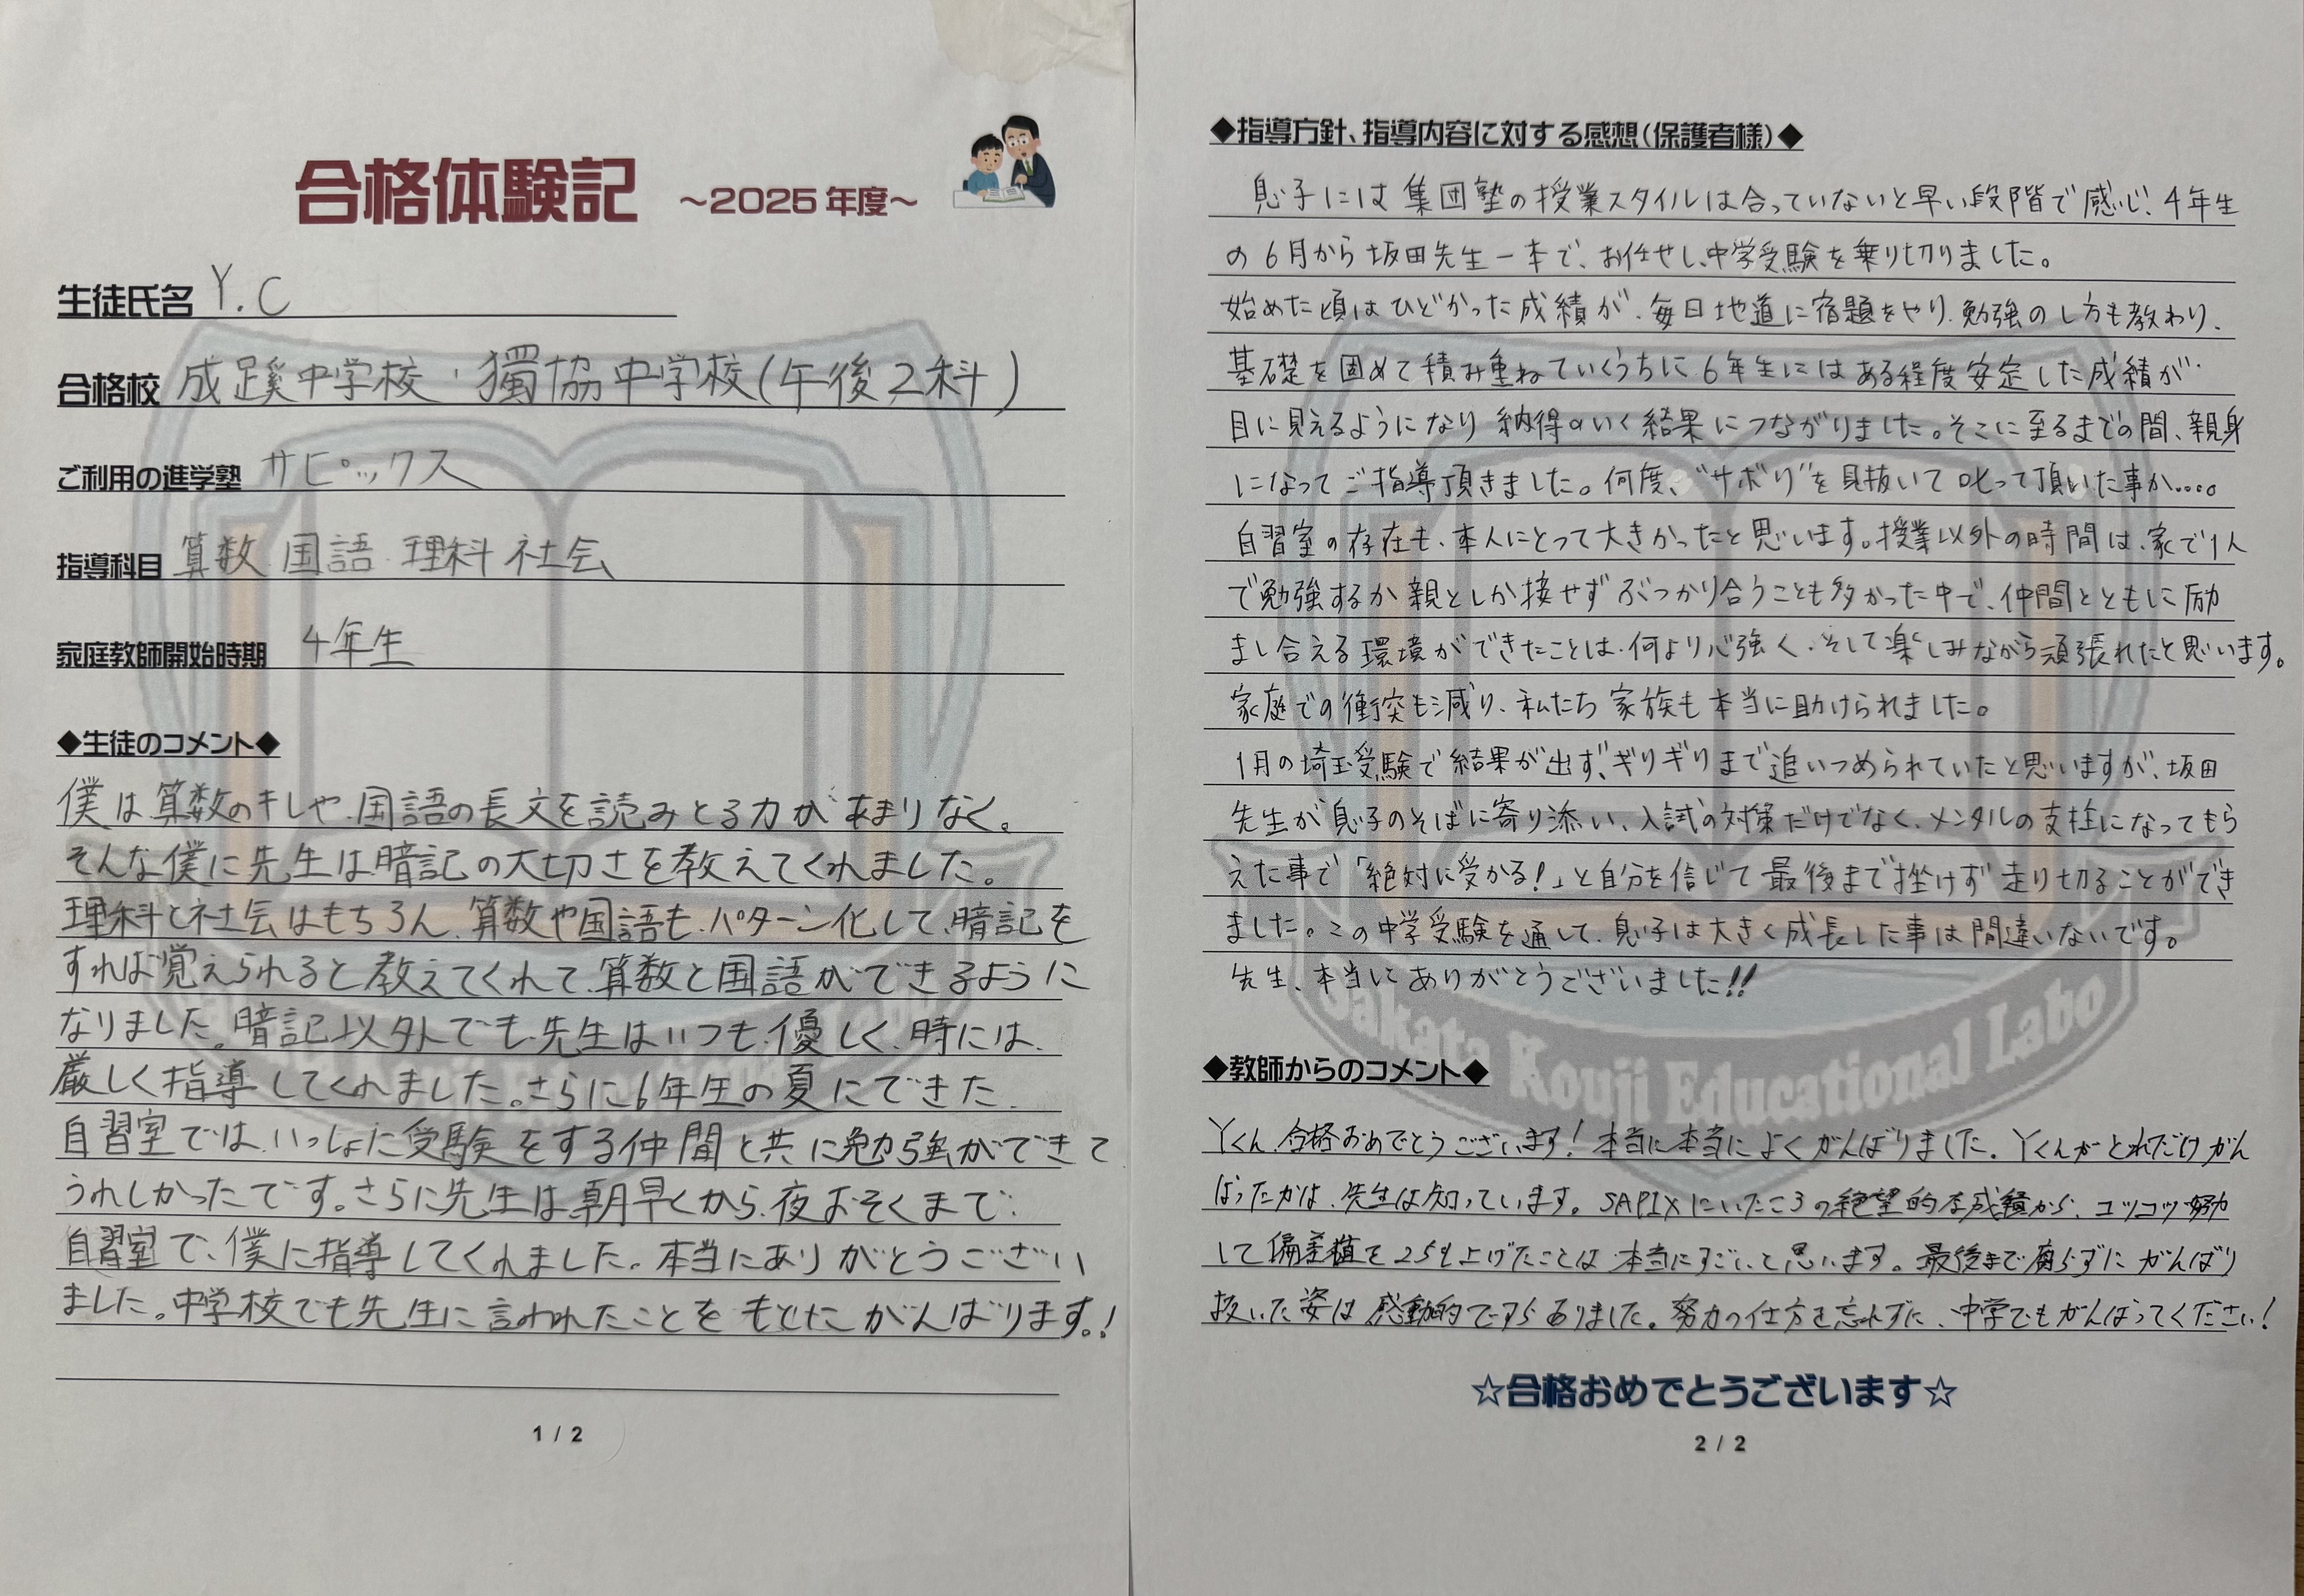 合格体験記 ～2025年度～
生徒氏名 Y.C
合格校 成蹊中学校・獨協中学校(午後2科)
ご利用の進学塾 サピックス
指導科目 算数 国語 理科 社会
家庭教師開始時期 4年生
◆生徒のコメント◆
僕は算数のキレや、国語の長文を読みとる力があまりなく。
そんな僕に先生は暗記の大切さを教えてくれました。
理科と社会はもちろん、算数や国語も、パターン化して、暗記を
すれば覚えられると教えてくれて、算数と国語ができるように
なりました。暗記以外でも、先生はいつも、優しく、時には、
厳しく指導してくれました。さらに6年生の夏にできた、
自習室では、いっしょに受験をする仲間と共に勉強ができて
うれしかったです。さらに先生は朝早くから、夜おそくまで、
自習室で、僕に指導してくれました。本当にありがとうござい
ました。中学校でも先生に言われたことをもとにがんばります。!
1 / 2
◆指導方針、指導内容に対する感想(保護者様)◆
息子には集団塾の授業スタイルは合っていないと早い段階で感じ、4年生
の6月から坂田先生一本で、お任せし、中学受験を乗り切りました。
始めた頃はひどかった成績が、毎日地道に宿題をやり、勉強のし方も教わり、
基礎を固めて積み重ねていくうちに6年生にはある程度安定した成績が
目に見えるようになり 納得のいく結果につながりました。そこに至るまでの間、親身
になってご指導頂きました。何度、"サボり"を見抜いて叱って頂いた事か....。
自習室の存在も、本人にとって大きかったと思います。授業以外の時間は、家で1人
で勉強するか親としか接せずぶつかり合うことも多かった中で、仲間とともに励
まし合える環境ができたことは、何より心強く、そして楽しみながら頑張れたと思います。
家庭での衝突も減り、私たち家族も本当に助けられました。
1月の埼玉受験で結果が出ず、ギリギリまで追いつめられていたと思いますが、坂田
先生が息子のそばに寄り添い、入試の対策だけでなく、メンタルの支柱になってもら
えた事で「絶対に受かる!」と自分を信じて最後まで挫けず走り切ることができ
ました。この中学受験を通して、息子は大きく成長した事は間違いないです。
先生、本当にありがとうございました!!
Sakata Kouji Educational Labo
◆教師からのコメント◆
Yくん、合格おめでとうございます!本当に本当によくがんばりました。Yくんがどれだけがん
ばったかは、先生は知っています。SAPIXにいたころの絶望的な成績から、コツコツ努力
して偏差値を25も上げたことは本当にすごいと思います。最後まで腐らずにがんばり
抜いた姿は感動的ですらありました。努力の仕方を忘れずに、中学でもがんばってください!
☆合格おめでとうございます☆
2 / 2